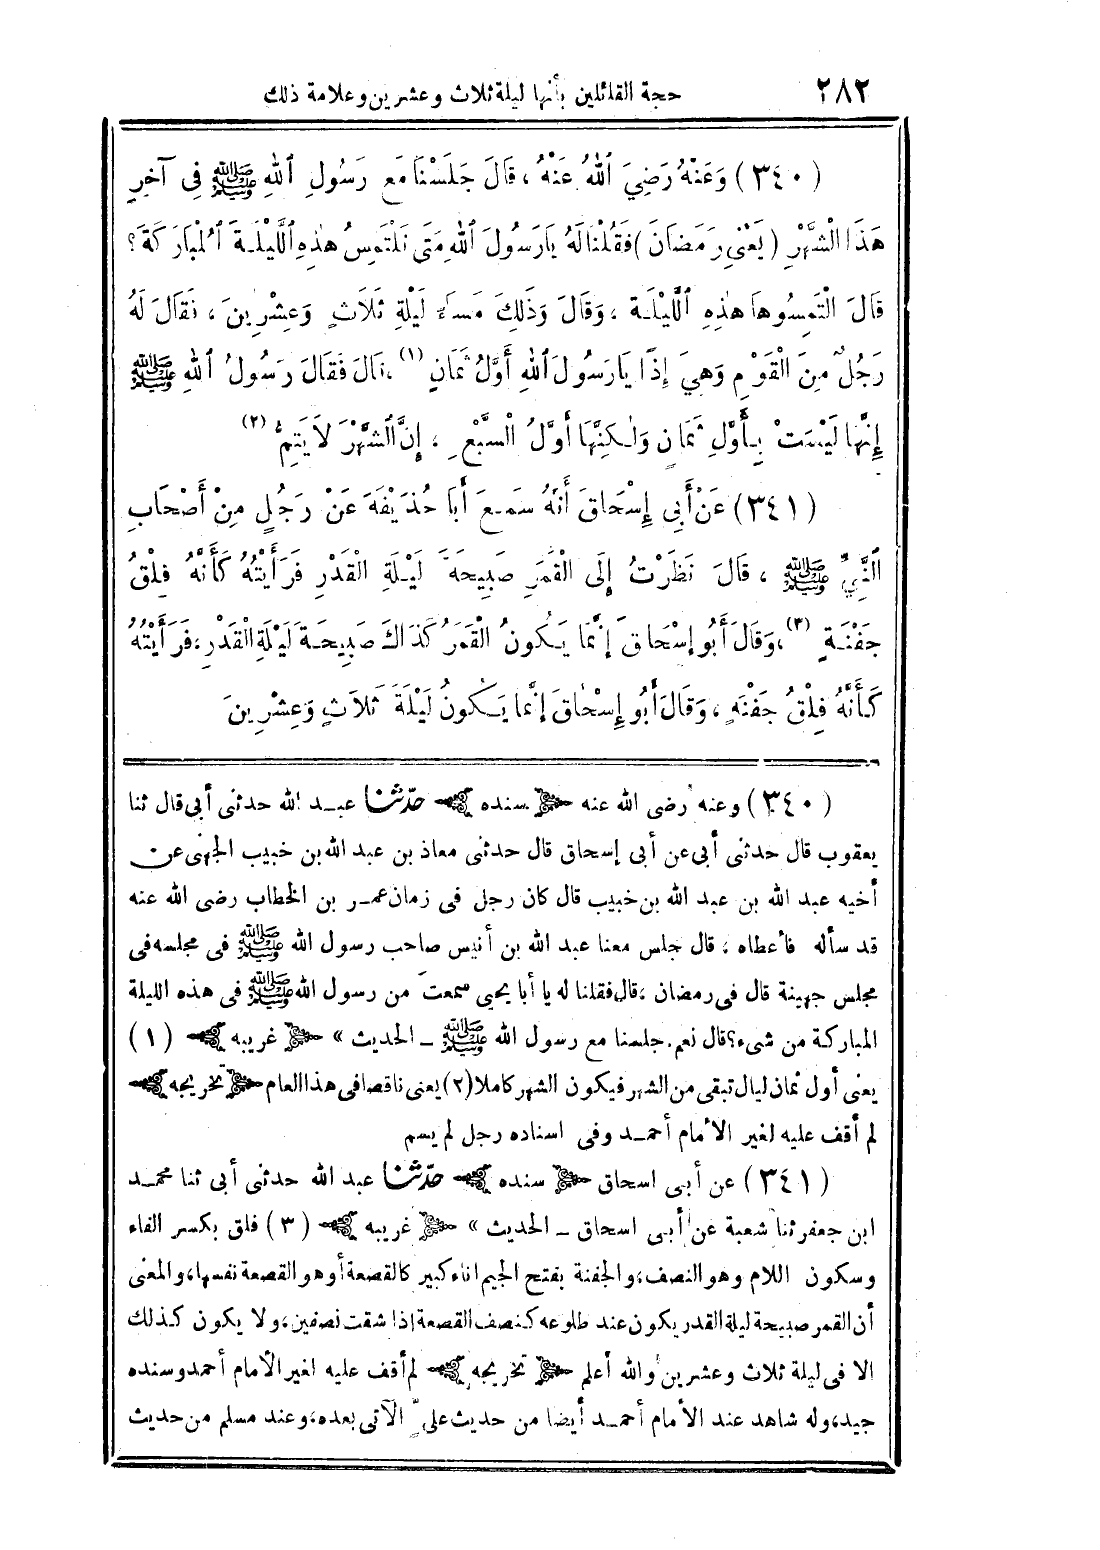 ٢٨٢ حجة القائلين بأنها ليلة ثلاث وعشرين وعلامة ذلك
(٣٤٠) وَعَنْهُ رَضِيَ ٱللهُ عَنْهُ، قَالَ جَلَسْنَا مَعَ رَسُولِ ٱللهِ ﷺ فِي آخِرِ
هَذَا الشَّهْرِ (يَعْنِي رَمَضَانَ) فَقُلْنَا لَهُ يَا رَسُولَ ٱللهِ مَتَى نَلْتَمِسُ هٰذِهِ ٱللَّيْلَةَ ٱلْمُبَارَكَةَ؟
قَالَ الْتَمِسُوهَا هٰذِهِ ٱللَّيْلَةَ، وَقَالَ وَذَلِكَ مَسَاءَ لَيْلَةِ ثَلَاثٍ وَعِشْرِينَ، فَقَالَ لَهُ
رَجُلٌ مِنَ الْقَوْمِ وَهِيَ إِذًا يَارَسُولَ ٱللهِ أَوَّلُ ثَمَانٍ (١)، قَالَ فَقَالَ رَسُولُ ٱللهِ ﷺ
إِنَّهَا لَيْسَتْ بِأَوَّلِ ثَمَانٍ وَلٰكِنَّهَا أَوَّلُ السَّبْعِ، إِنَّ ٱلشَّهْرَ لَا يَتِمُّ (٢)
(٣٤١) عَنْ أَبِي إِسْحَاقَ أَنَّهُ سَمِعَ أَبَا حُذَيْفَةَ عَنْ رَجُلٍ مِنْ أَصْحَابِ
ٱلنَّبِيِّ ﷺ، قَالَ نَظَرْتُ إِلَى الْقَمَرِ صَبِيحَةَ لَيْلَةِ الْقَدْرِ فَرَأَيْتُهُ كَأَنَّهُ فِلْقُ
جَفْنَةٍ (٣)، وَقَالَ أَبُو إِسْحَاقَ إِنَّمَا يَكُونُ الْقَمَرُ كَذَاكَ صَبِيحَةَ لَيْلَةِ الْقَدْرِ، فَرَأَيْتُهُ
كَأَنَّهُ فِلْقُ جَفْنَةٍ، وَقَالَ أَبُو إِسْحَاقَ إِنَّمَا يَكُونُ لَيْلَةَ ثَلَاثٍ وَعِشْرِينَ
(٣٤٠) وعنه رضى الله عنه ﴿ سنده ﴾ حدّثنا عبد الله حدثنى أبى قال ثنا
يعقوب قال حدثنى أبى عن أبى إسحاق قال حدثنى معاذ بن عبد الله بن خبيب الجهنى عن
أخيه عبد الله بن عبد الله بن خبيب قال كان رجل فى زمان عمر بن الخطاب رضى الله عنه
قد سأله فأعطاه، قال جلس معنا عبد الله بن أنيس صاحب رسول الله ﷺ فى مجلسه فى
مجلس جهينة قال فى رمضان، قال فقلنا له يا أبا يحيى سمعت من رسول الله ﷺ فى هذه الليلة
المباركة من شىء؟ قال نعم. جلسنا مع رسول الله ﷺ ـ الحديث » ﴿ غريبه ﴾ (١)
يعنى أول ثمان ليال تبقى من الشهر فيكون الشهر كاملا (٢) يعنى ناقصا فى هذا العام ﴿ تخريجه ﴾
لم أقف عليه لغير الأمام أحمد وفى اسناده رجل لم يسم
(٣٤١) عن أبى اسحاق ﴿ سنده ﴾ حدّثنا عبد الله حدثنى أبى ثنا محمد
ابن جعفر ثنا شعبة عن أبى اسحاق ـ الحديث » ﴿ غريبه ﴾ (٣) فلق بكسر الفاء
وسكون اللام وهو النصف، والجفنة بفتح الجيم اناء كبير كالقصعة أو هو القصعة نفسها، والمعنى
أن القمر صبيحة ليلة القدر يكون عند طلوعه كنصف القصعة إذا شقت نصفين، ولا يكون كذلك
الا فى ليلة ثلاث وعشرين والله أعلم ﴿ تخريجه ﴾ لم أقف عليه لغير الأمام أحمد وسنده
جيد، وله شاهد عند الأمام أحمد أيضا من حديث علىّ الآتى بعده، وعند مسلم من حديث